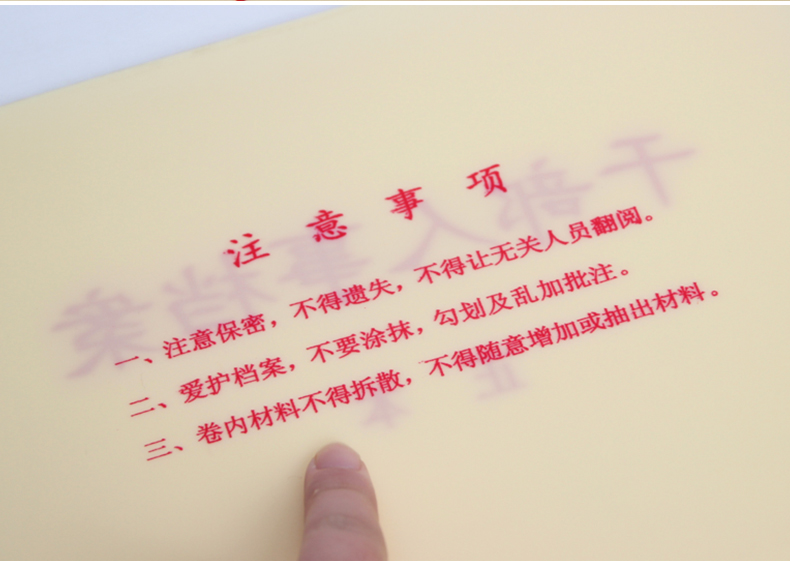 注意事项
一、注意保密，不得遗失，不得让无关人员翻阅。
二、爱护档案，不要涂抹，勾划及乱加批注。
三、卷内材料不得拆散，不得随意增加或抽出材料。
干部人事档案
正本